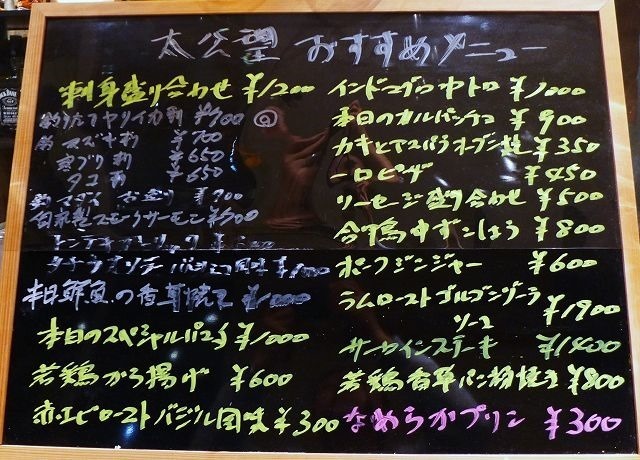 太公望 おすすめメニュー
刺身盛り合わせ ¥1200
釣りたてヤリイカ刺 ¥900
¥700
寒ブリ刺 ¥650
タコ刺 ¥650
¥900
自家製スモークサーモン ¥500
バルサミコ風味 ¥1000
本日鮮魚の香草焼き ¥1000
本日のスペシャルパスタ ¥1000
若鶏から揚げ ¥600
赤エビローストバジル風味 ¥300
インドマグロ中トロ ¥1000
本日のカルパッチョ ¥900
カキとアスパラオーブン焼 ¥350
一口ピザ ¥450
ソーセージ盛り合わせ ¥500
合鴨ゆずこしょう ¥800
ポークジンジャー ¥600
ラムローストゴルゴンゾーラ
ソース ¥1900
サーロインステーキ ¥1400
若鶏香草パン粉焼き ¥800
なめらかプリン ¥300